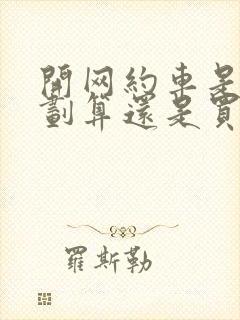 開网約車是
劃算還是買
羅斯勒